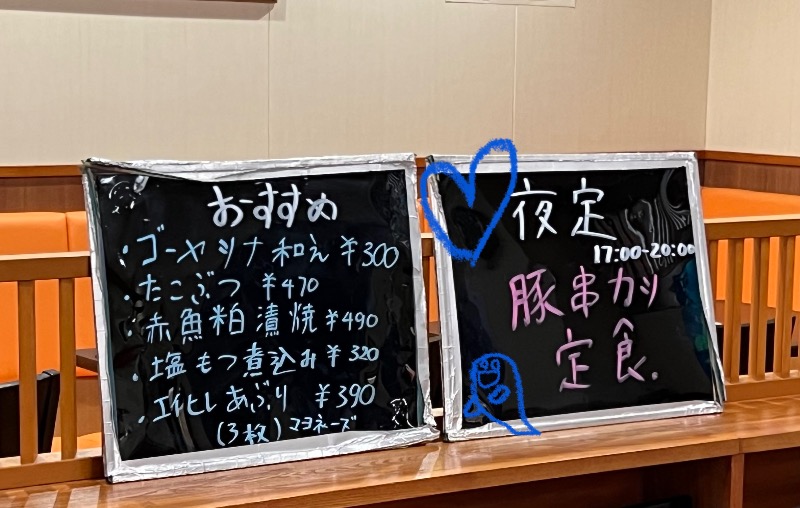 おすすめ
・ゴーヤツナ和え ¥300
・たこぶつ ¥470
・赤魚粕漬焼 ¥490
・塩もつ煮込み ¥320
・エイヒレあぶり ¥390
(3枚) マヨネーズ
夜定
17:00-20:00
豚串カツ
定食.